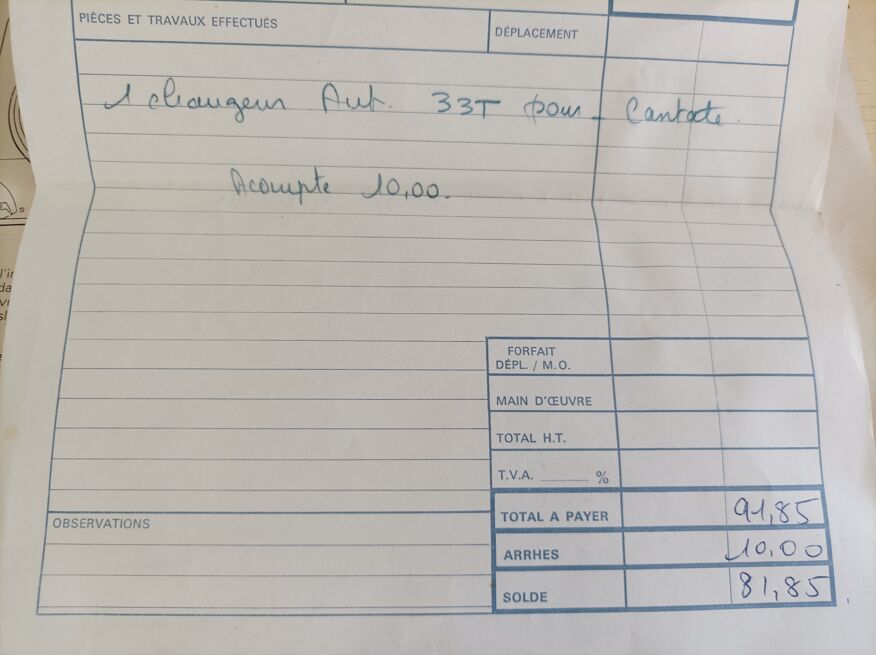 PIÈCES ET TRAVAUX EFFECTUÉS
DÉPLACEMENT
1 changeur Aut. 33T pour
Acompte 10,00.
FORFAIT
DÉPL. / M.O.
MAIN D'ŒUVRE
TOTAL H.T.
T.V.A. %
TOTAL A PAYER 91,85
OBSERVATIONS
ARRHES 10,00
SOLDE 81,85